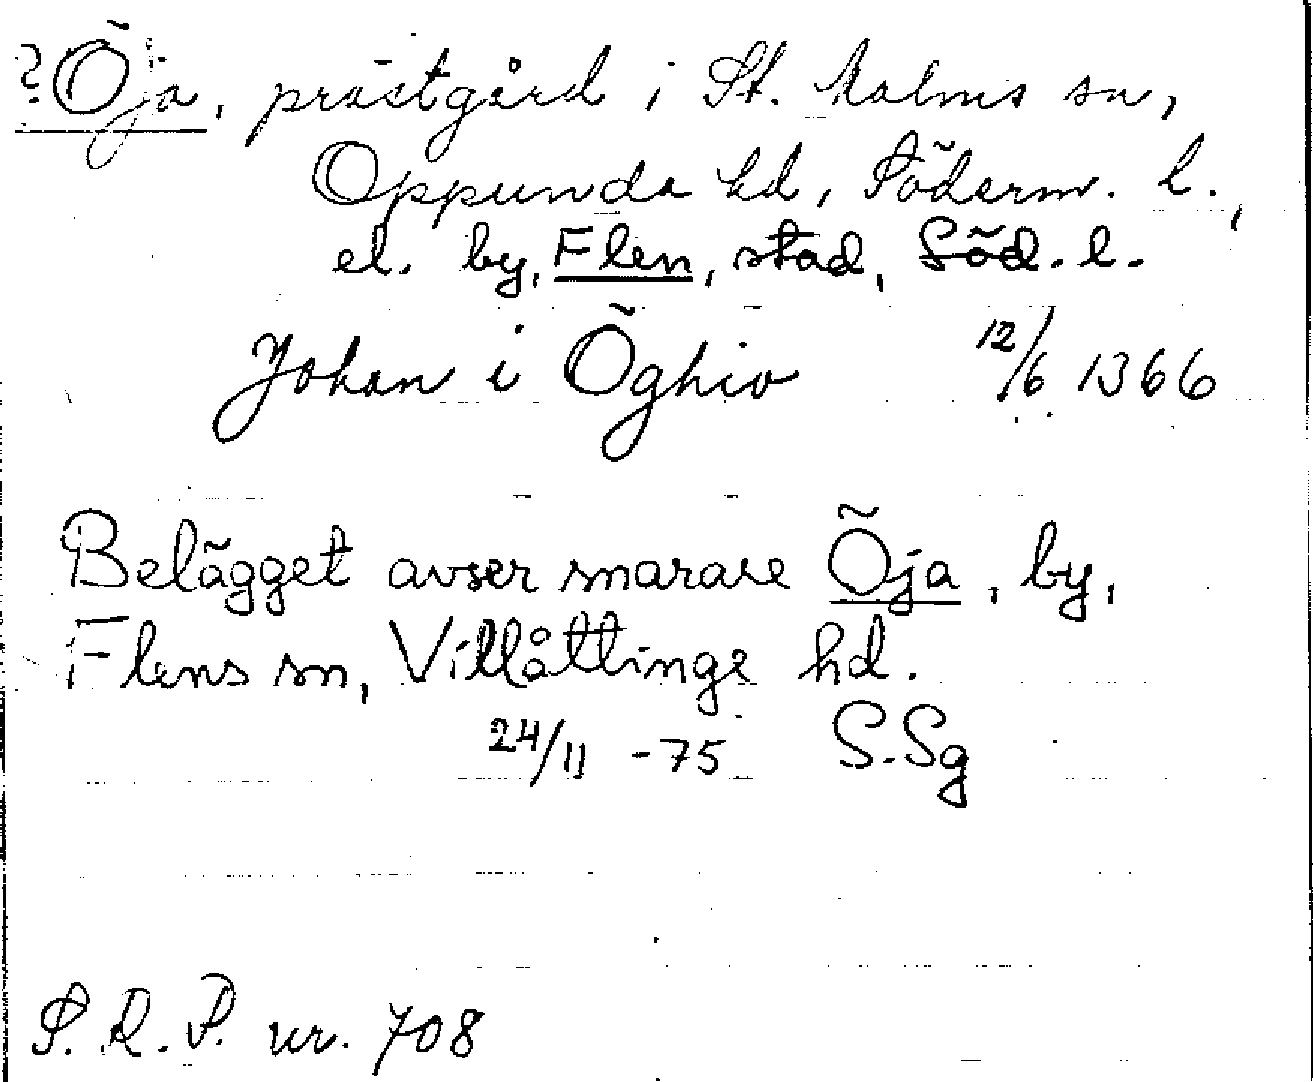 ? Öja, prästgård i St. Malms sn,
Oppunda hd, Söderm. l.,
el. by, Flen, stad, Söd. l.
Johan i Öghio 12/6 1366
Belägget avser snarare Öja, by,
Flens sn, Villåttinge hd.
24/11 -75 S.Sg
S.R.P. nr. 708